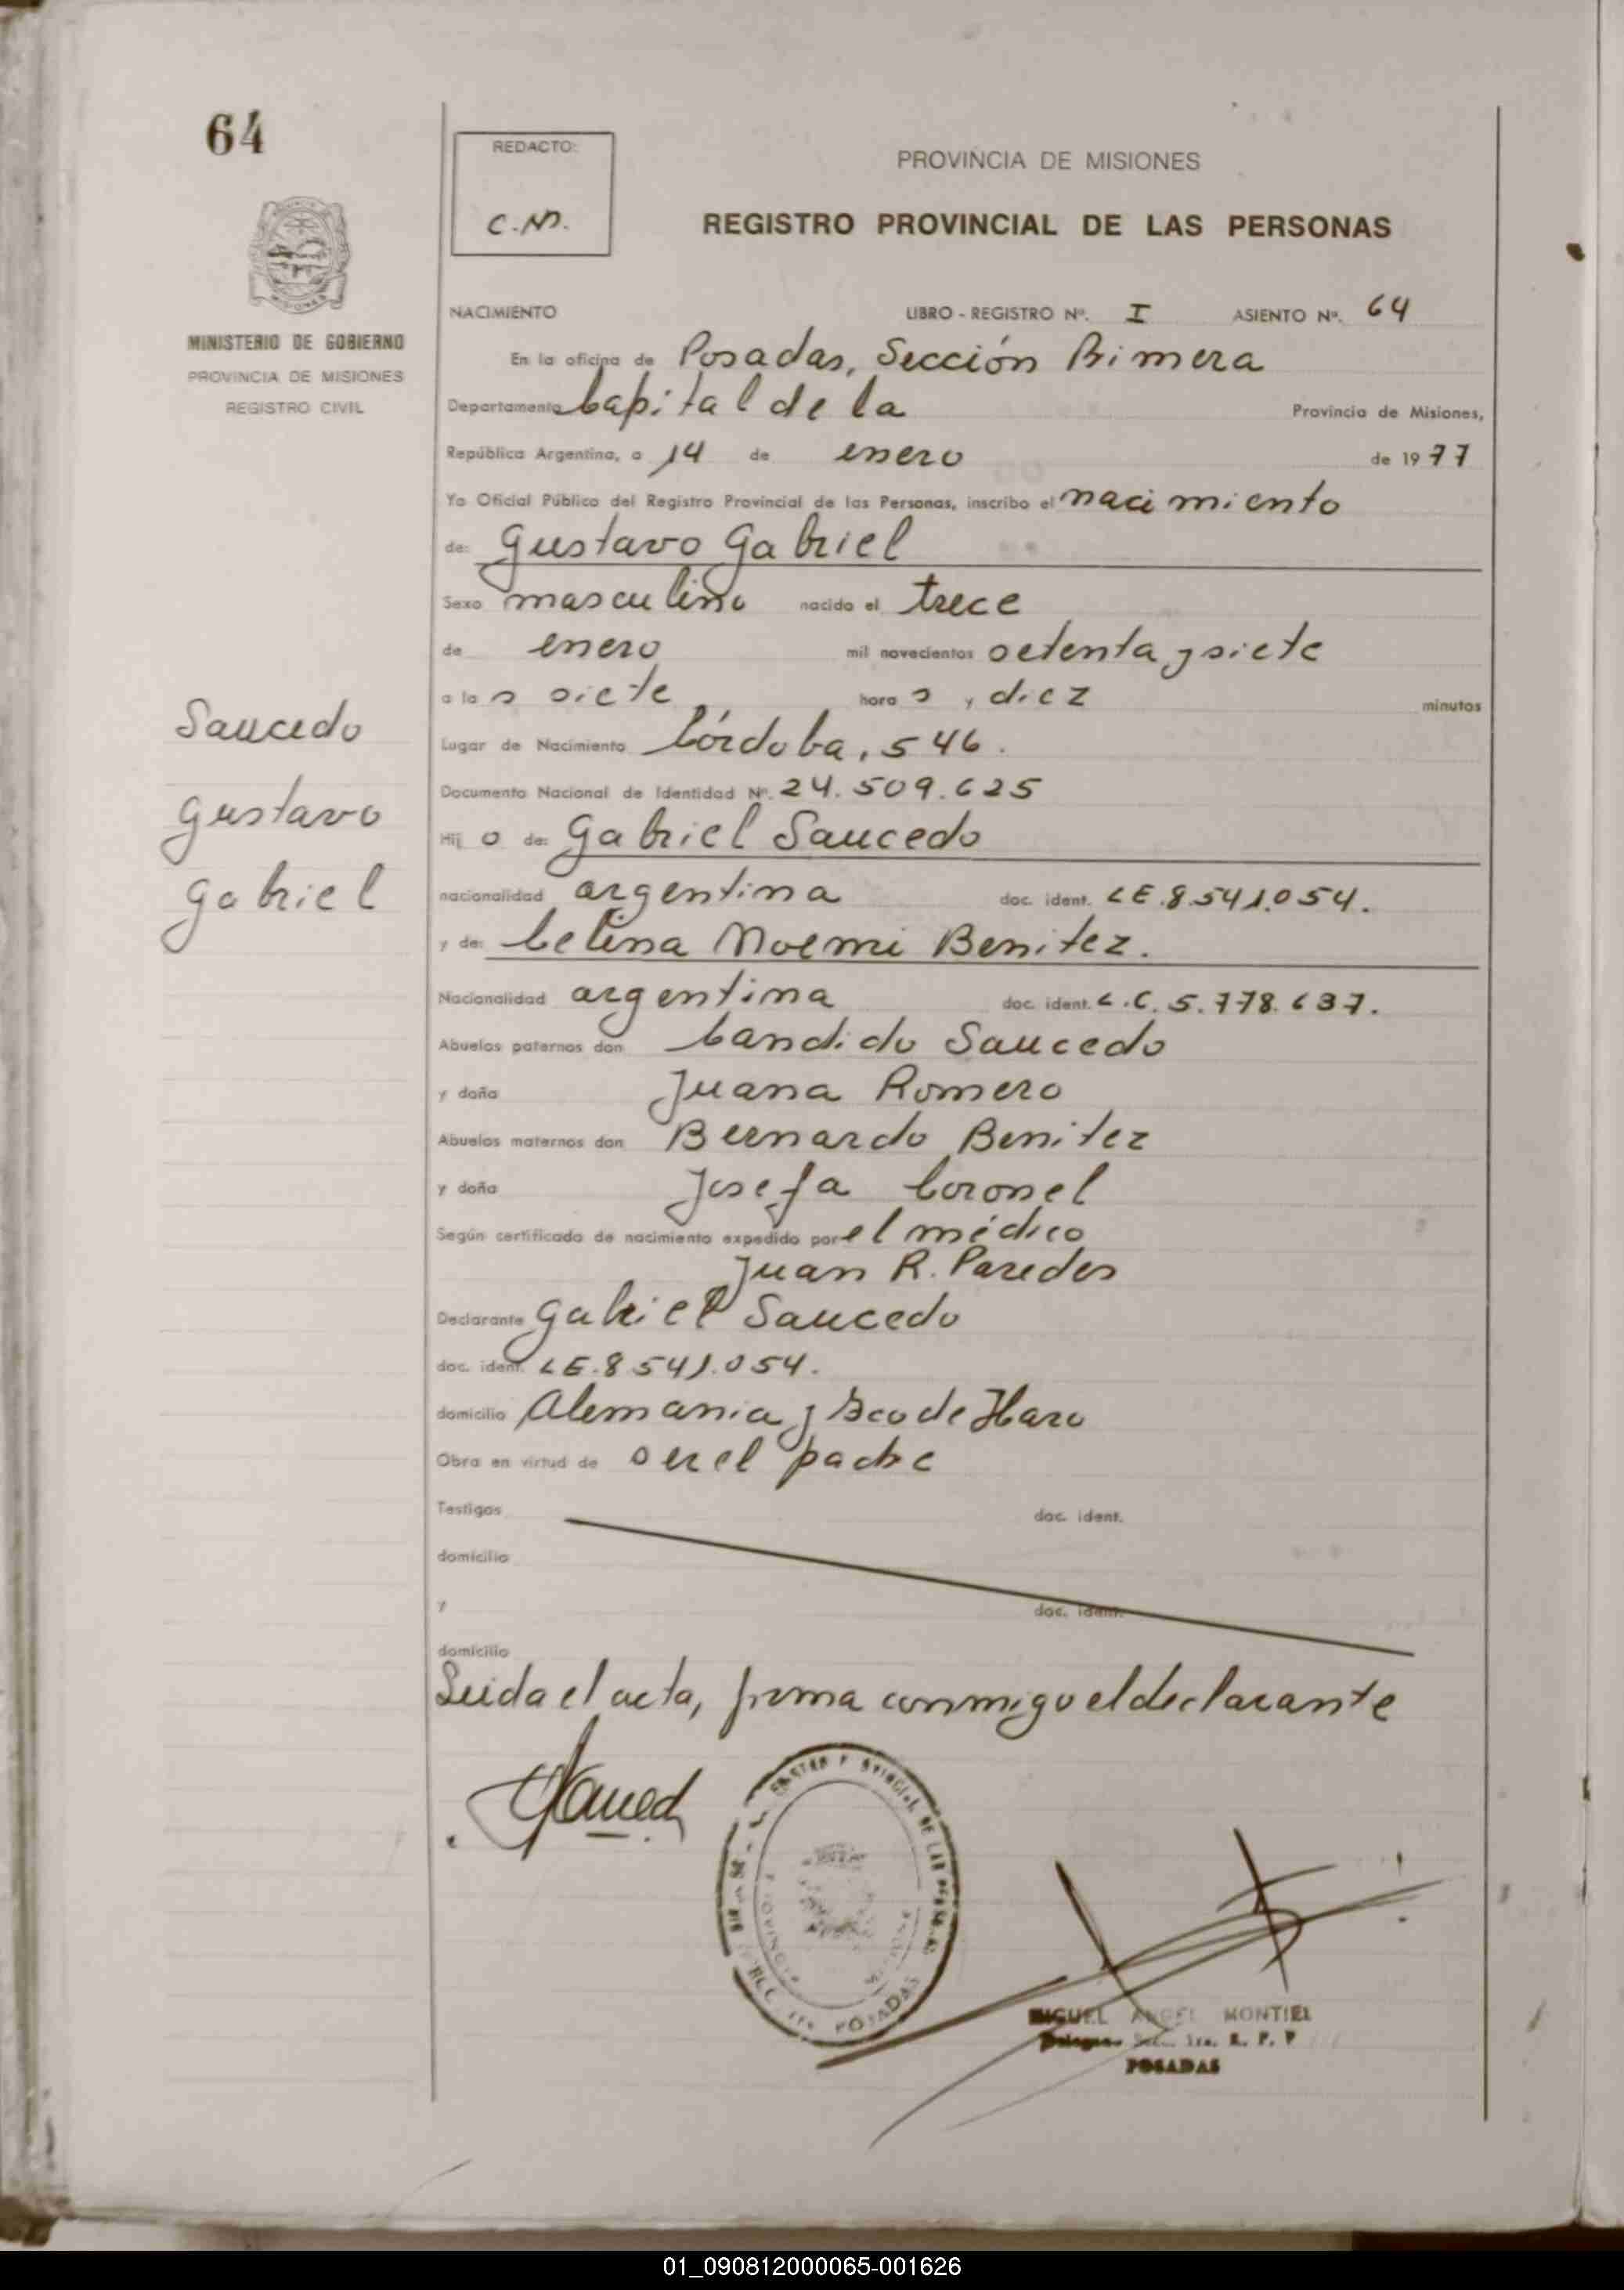 64
REDACTO:
C.N.
PROVINCIA DE MISIONES
REGISTRO PROVINCIAL DE LAS PERSONAS
MINISTERIO DE GOBIERNO
PROVINCIA DE MISIONES
REGISTRO CIVIL
NACIMIENTO LIBRO - REGISTRO Nº. I ASIENTO Nº. 64
En la oficina de Posadas, Sección Primera
Departamento Capital de la Provincia de Misiones,
República Argentina, a 14 de enero de 1977
Yo Oficial Público del Registro Provincial de las Personas, inscribo el nacimiento
de: Gustavo Gabriel
Sexo masculino nacido el trece
de enero mil novecientos setenta y siete
a las siete horas y diez minutos
Lugar de Nacimiento Córdoba, 546.
Documento Nacional de Identidad Nº. 24.509.625
Hijo de: Gabriel Saucedo
nacionalidad argentina doc. ident. LE.8.541.054.
y de: Celina Noemi Benitez.
Nacionalidad argentina doc. ident. L.C. 5.778.637.
Abuelos paternos don Candido Saucedo
y doña Juana Romero
Abuelos maternos don Bernardo Benitez
y doña Josefa Coronel
Según certificado de nacimiento expedido por el médico
Juan R. Paredes
Declarante Gabriel Saucedo
doc. ident. LE.8541.054.
domicilio Alemania y Fco de Haro
Obra en virtud de ser el padre
Testigos doc. ident.
domicilio
y doc. ident.
domicilio
Leida el acta, firma conmigo el declarante
Saucedo
Gustavo
Gabriel
MIGUEL ANGEL MONTIEL
1ra. R. P. P
POSADAS
POSADAS
01_090812000065-001626